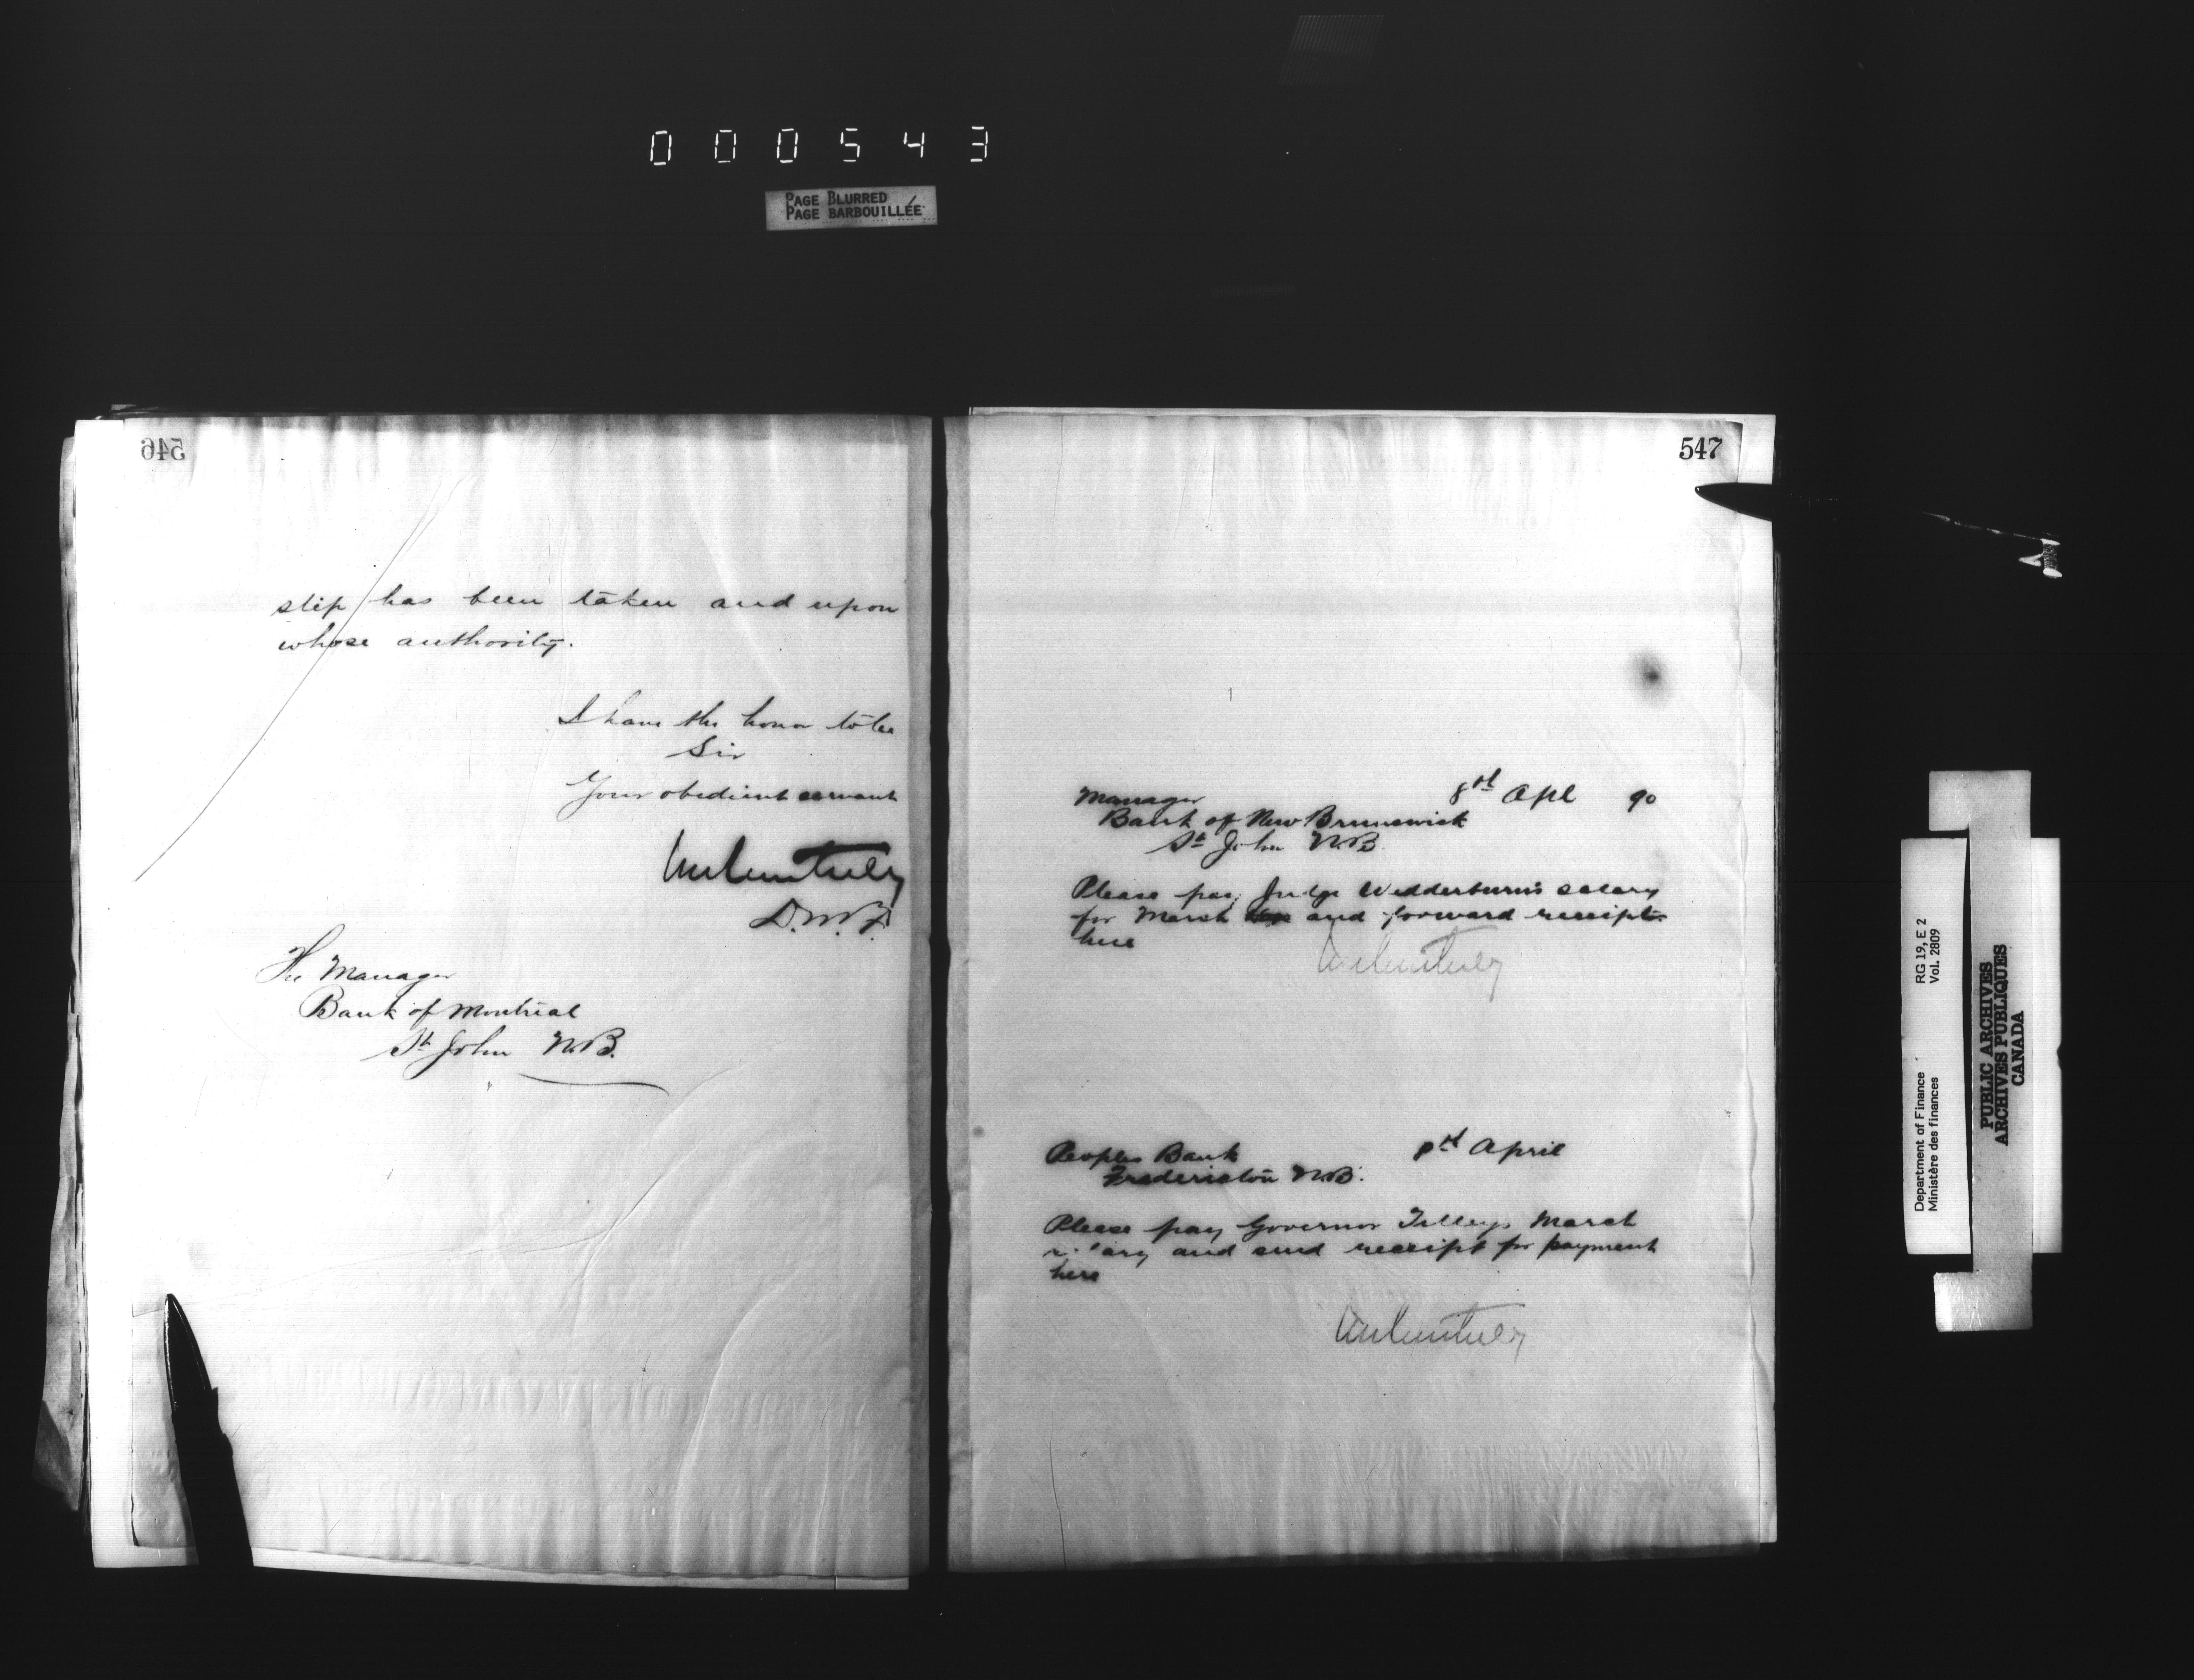 000543
PAGE BLURRED
PAGE BARBOUILLÉE
546
step has been taken and upon
whose authority.
I have the honor to be
Sir
Your obedient servant
D.M.F.
The Manager
Bank of Montreal
St John N.B.
547
8th Apl 90
Manager
Bank of New Brunswick
St John N.B.
Please pay Judge Wedderburn's salary
for March and forward receipt
here
8th April
Peoples Bank
Fredericton N.B.
Please pay Governor Tilleys March
salary and send receipt for payment
here
Department of Finance RG 19, E 2
Ministère des finances Vol. 2809
PUBLIC ARCHIVES
ARCHIVES PUBLIQUES
CANADA